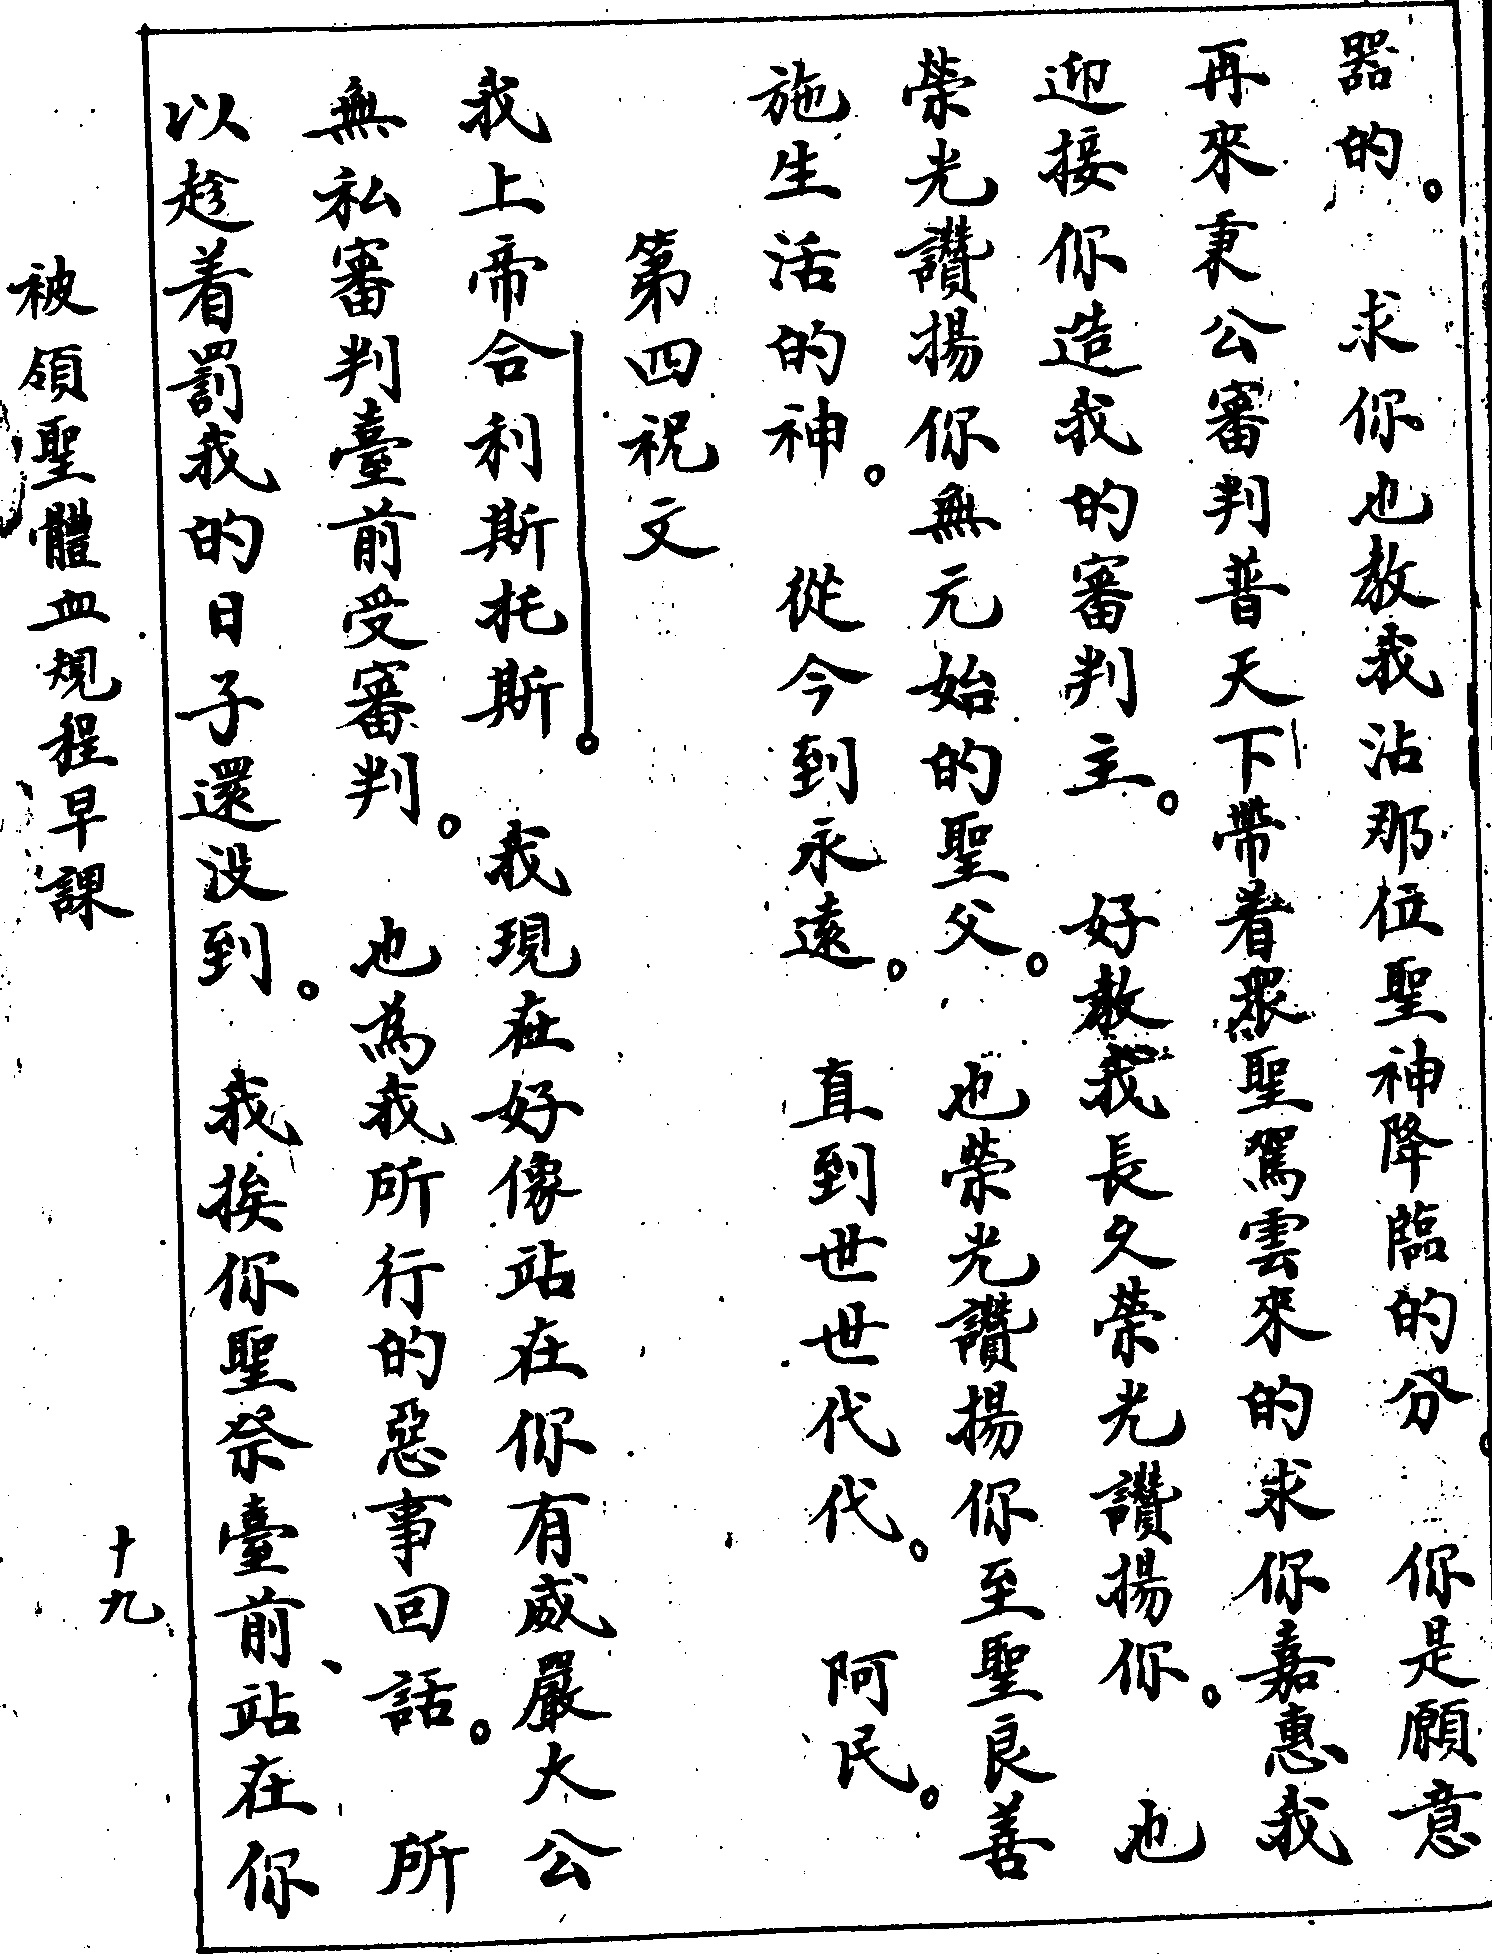 器的。求你也教我沾那位聖神降臨的分。你是願意
再來秉公審判普天下帶着眾聖駕雲來的求你嘉惠我
迎接你造我的審判主。好教我長久榮光讚揚你。也
榮光讚揚你無元始的聖父。也榮光讚揚你至聖良善
施生活的神。從今到永遠。直到世世代代。阿民。
第四祝文
我上帝合利斯托斯。我現在好像站在你有威嚴大公
無私審判臺前受審判。也為我所行的惡事回話。所
以趁着罰我的日子還没到。我挨你聖祭臺前、站在你
被領聖體血規程早課
十九